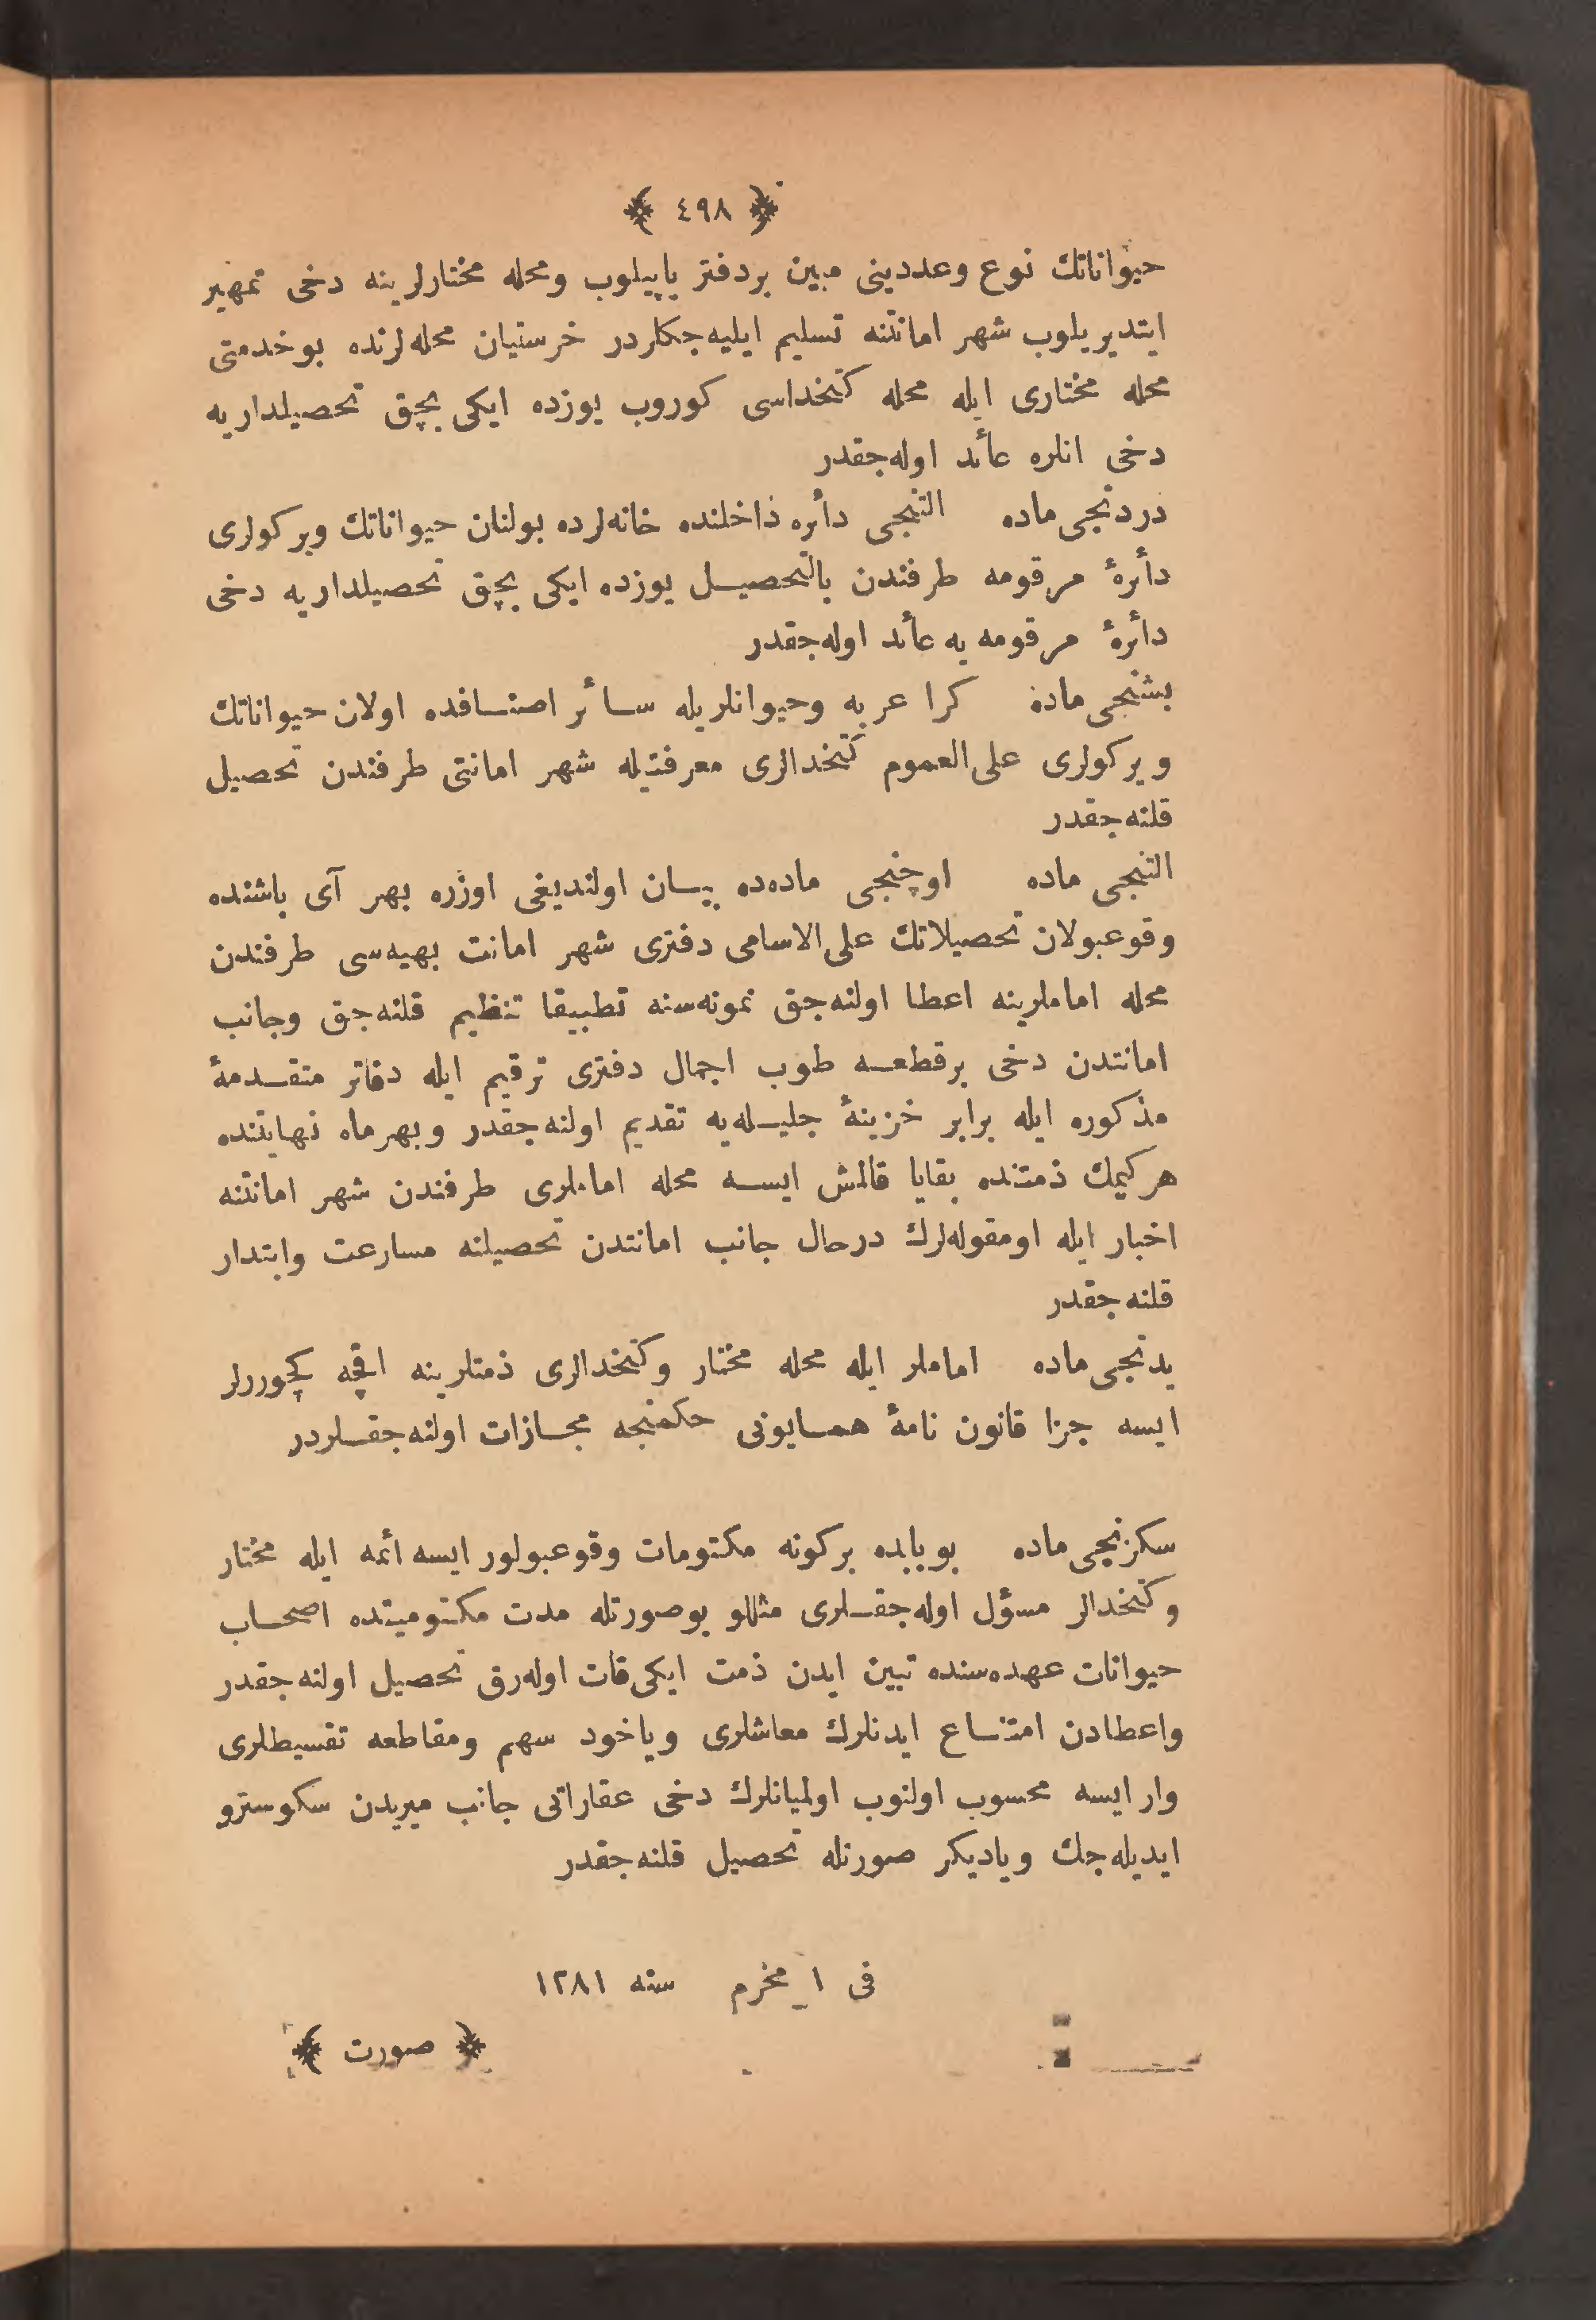 ﴿ ٤٩٨ ﴾
حیواناتك نوع وعددینی مبین بردفتر یاپیلوب ومحله مختارلرینه دخی تمهیر
ایتدیریلوب شهر امانتنه تسلیم ایلیه‌جكلردر خرستیان محله‌لرنده بوخدمتی
محله مختاری ایله محله كتخداسی كوروب یوزده ایكی بچق تحصیلداریه
دخی انلره عائد اوله‌جقدر
دردنجی ماده التنجی دائره داخلنده خانه‌لرده بولنان حیواناتك ویركولری
دائرۀ مرقومه طرفندن بالتحصیل یوزده ایكی بچق تحصیلداریه دخی
دائرۀ مرقومه یه عائد اوله‌جقدر
بشنجی ماده كرا عربه وحیوانلریله سائر اصنافده اولان حیواناتك
ویركولری علی‌العموم كتخدالری معرفتیله شهر امانتی طرفندن تحصیل
قلنه‌جقدر
التنجی ماده اوچنجی ماده‌ده بیان اولندیغی اوزره بهر آی باشنده
وقوعبولان تحصیلاتك علی‌الاسامی دفتری شهر امانت بهیه‌سی طرفندن
محله اماملرینه اعطا اولنه‌جق نمونه‌سنه تطبیقا تنظیم قلنه‌جق وجانب
امانتدن دخی برقطعه طوب اجمال دفتری ترقیم ایله دفاتر متقدمۀ
مذكوره ایله برابر خزینۀ جلیله‌یه تقدیم اولنه‌جقدر وبهرماه نهایتنده
هركیمك ذمتنده بقایا قالمش ایسه محله اماملری طرفندن شهر امانتنه
اخبار ایله اومقوله‌لرك درحال جانب امانتدن تحصیلنه مسارعت وابتدار
قلنه‌جقدر
یدنجی ماده اماملر ایله محله مختار وكتخدالری ذمتلرینه اقچه كچوررلر
ایسه جزا قانون نامۀ همایونی حكمنجه مجازات اولنه‌جقلردر
سكزنجی ماده بوبابده بركونه مكتومات وقوعبولور ایسه ائمه ایله مختار
وكتخدالر مسؤل اوله‌جقلری مثللو بوصورتله مدت مكتومیتده اصحاب
حیوانات عهده‌سنده تبین ایدن ذمت ایكی قات اوله‌رق تحصیل اولنه‌جقدر
واعطادن امتناع ایدنلرك معاشلری ویاخود سهم ومقاطعه تقسیطلری
وار ایسه محسوب اولنوب اولمیانلرك دخی عقاراتی جانب میریدن سكوسترو
ایدیله‌جك ویادیكر صورتله تحصیل قلنه‌جقدر
فی ١ محرم سنه ١٢٨١
﴿ صورت ﴾